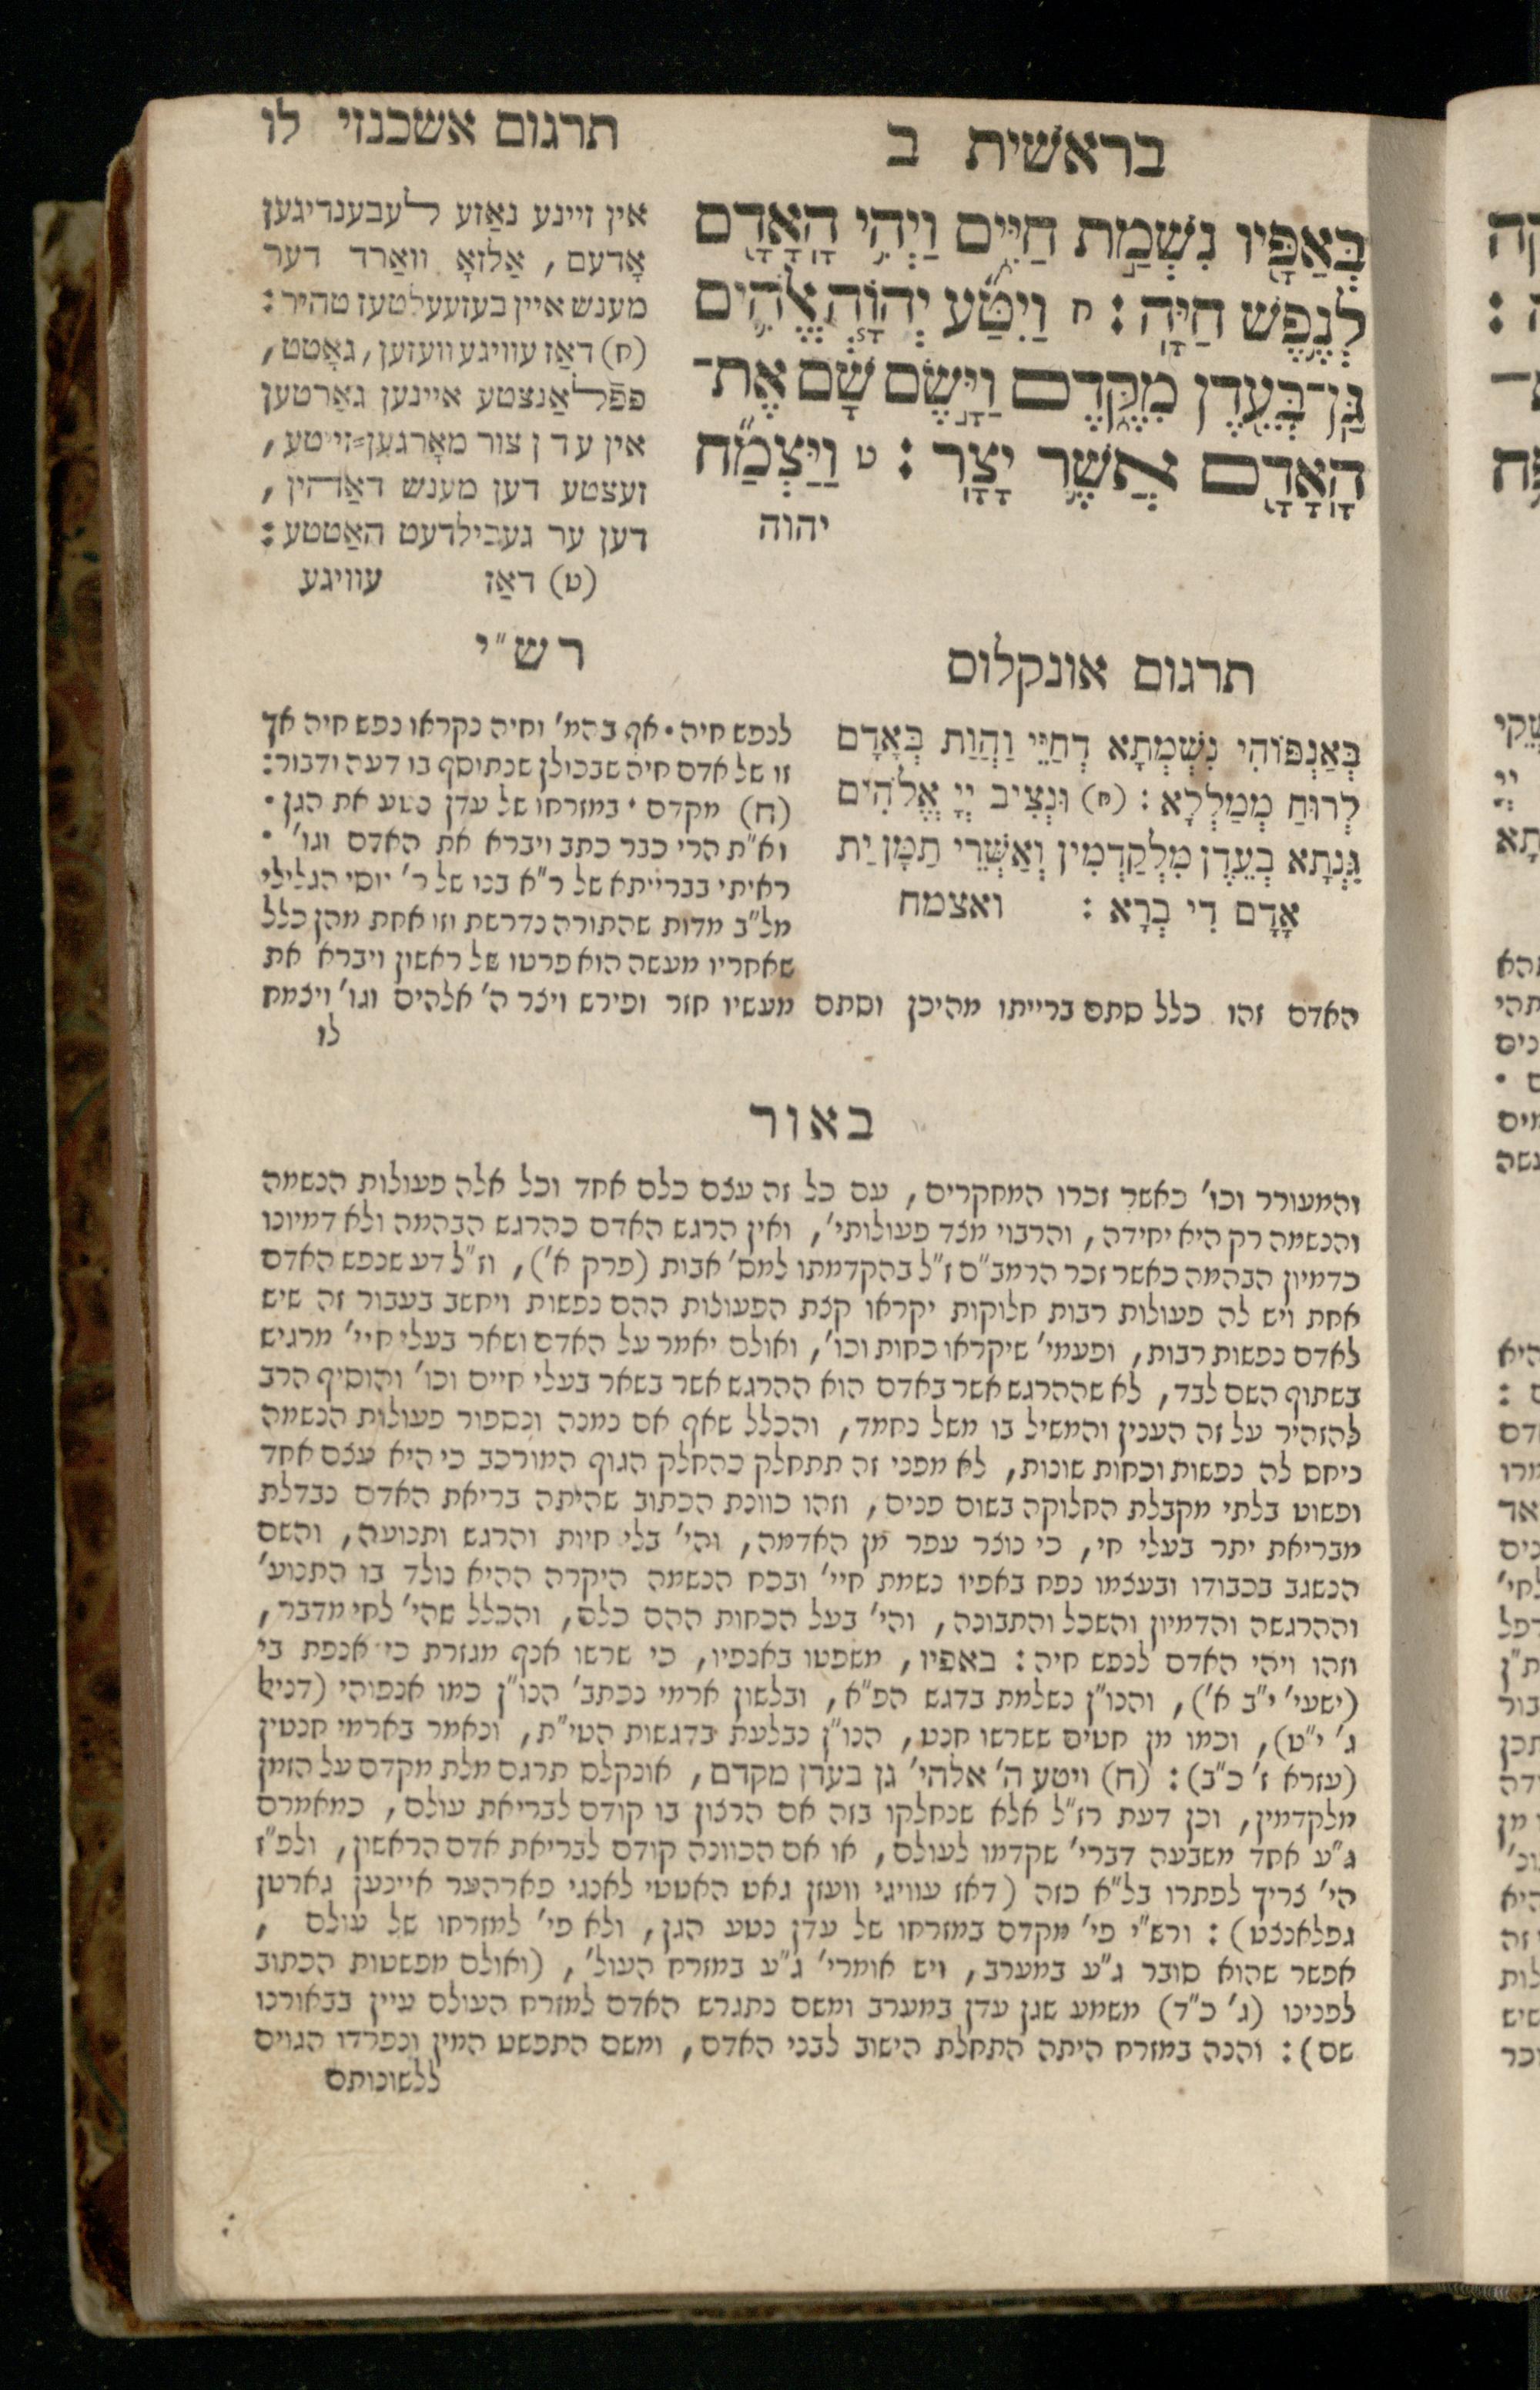 בראשית ב
תרגום אשכנזי לו
בְּאַפָּיו נִשְׁמַת חַיִּים וַיְהִי הָאָדָם
לְנֶפֶשׁ חַיָּה: ח וַיִּטַּע יְהוָֹה אֱלֹהִים
גַּן־בְּעֵדֶן מִקֶּדֶם וַיָּשֶׂם שָׁם אֶת־
הָאָדָם אֲשֶׁר יָצָר: ט וַיַּצְמַח
יהוה
אין זיינע נאַזע לעבענדיגען
אָדעם, אַלזאָ וואַרד דער
מענש איין בעזעעלטעז טהיר:
(ח) דאַז עוויגע וועזען, גאָטט,
פפלאַנצטע איינען גאַרטען
אין עדן צור מאָרגען=זייטע,
זעצטע דען מענש דאַהין,
דען ער געבילדעט האַטטע:
(ט) דאַז עוויגע
תרגום אונקלוס
בְּאַנְפּוֹהִי נִשְׁמְתָא דְחַיֵּי וַהֲוַת בְּאָדָם
לְרוּחַ מְמַלְלָא: (ח) וּנְצִיב יְיָ אֱלֹהִים
גִּנְתָא בְעֵדֶן מִלְקַדְמִין וְאַשְׁרֵי תַמָּן יַת
אָדָם דִי בְרָא: ואצמח
רש"י
לנפש חיה • אף בהמ' וחיה נקראו נפש חיה אך
זו של אדם חיה שבכולן שנתוסף בו דעה ודבור:
(ח) מקדם • במזרחו של עדן נטע את הגן •
וא"ת הרי כבר כתב ויברא את האדם וגו' •
ראיתי בברייתא של ר"א בנו של ר' יוסי הגלילי
מל"ב מדות שהתורה נדרשת וזו אחת מהן כלל
שאחריו מעשה הוא פרטו של ראשון ויברא את
האדם זהו כלל סתם ברייתו מהיכן וסתם מעשיו חזר ופירש ויצר ה' אלהים וגו' ויצמח
לו
באור
והמעורר וכו' כאשר זכרו המחקרים, עם כל זה עצם כלם אחד וכל אלה פעולות הנשמה
והנשמה רק היא יחידה, והרבוי מצד פעולותי', ואין הרגש האדם כהרגש הבהמה ולא דמיונו
כדמיון הבהמה כאשר זכר הרמב"ם ז"ל בהקדמתו למס' אבות (פרק א'), וז"ל דע שנפש האדם
אחת ויש לה פעולות רבות חלוקות יקראו קצת הפעולות ההם נפשות ויחשב בעבור זה שיש
לאדם נפשות רבות, ופעמי' שיקראו כחות וכו', ואולם יאמר על האדם ושאר בעלי חיי' מרגיש
בשתוף השם לבד, לא שההרגש אשר באדם הוא ההרגש אשר בשאר בעלי חיים וכו' והוסיף הרב
להזהיר על זה הענין והמשיל בו משל נחמד, והכלל שאף אם נמנה ונספור פעולות הנשמה
ניחס לה נפשות וכחות שונות, לא מפני זה תתחלק כהחלק הגוף המורכב כי היא עצם אחד
ופשוט בלתי מקבלת החלוקה בשום פנים, וזהו כוונת הכתוב שהיתה בריאת האדם נבדלת
מבריאת יתר בעלי חי, כי נוצר עפר מן האדמה, והי' בלי חיות והרגש ותנועה, והשם
הנשגב בכבודו ובעצמו נפח באפיו נשמת חיי' ובכח הנשמה היקרה ההיא נולד בו התנוע'
וההרגשה והדמיון והשכל והתבונה, והי' בעל הכחות ההם כלם, והכלל שהי' לחי מדבר,
וזהו ויהי האדם לנפש חיה: באפיו, משפטו באנפיו, כי שרשו אנף מגזרת כי אנפת בי
(ישעי' י"ב א'), והנו"ן נשלמת בדגש הפ"א, ובלשון ארמי נכתב' הנו"ן כמו אנפוהי (דניאל
ג' י"ט), וכמו מן חטים ששרשו חנט, הנו"ן נבלעת בדגשות הטי"ת, ונאמר בארמי חנטין
(עזרא ז' כ"ב): (ח) ויטע ה' אלהי' גן בעדן מקדם, אונקלס תרגם מלת מקדם על הזמן
מלקדמין, וכן דעת רז"ל אלא שנחלקו בזה אם הרצון בו קודם לבריאת עולם, כמאמרם
ג"ע אחד משבעה דברי' שקדמו לעולם, או אם הכוונה קודם לבריאת אדם הראשון, ולפ"ז
הי' צריך לפתרו בל"א כזה (דאז עוויגי וועזן גאט האטטי לאנגי פארהער איינען גארטן
גפלאנצט): ורש"י פי' מקדם במזרחו של עדן נטע הגן, ולא פי' למזרחו של עולם,
אפשר שהוא סובר ג"ע במערב, ויש אומרי' ג"ע במזרח העול', (ואולם מפשטות הכתוב
לפנינו (ג' כ"ד) משמע שגן עדן במערב ומשם נתגרש האדם למזרח העולם עיין בבאורנו
שם): והנה במזרח היתה התחלת הישוב לבני האדם, ומשם התפשט המין ונפרדו הגוים
ללשונותם